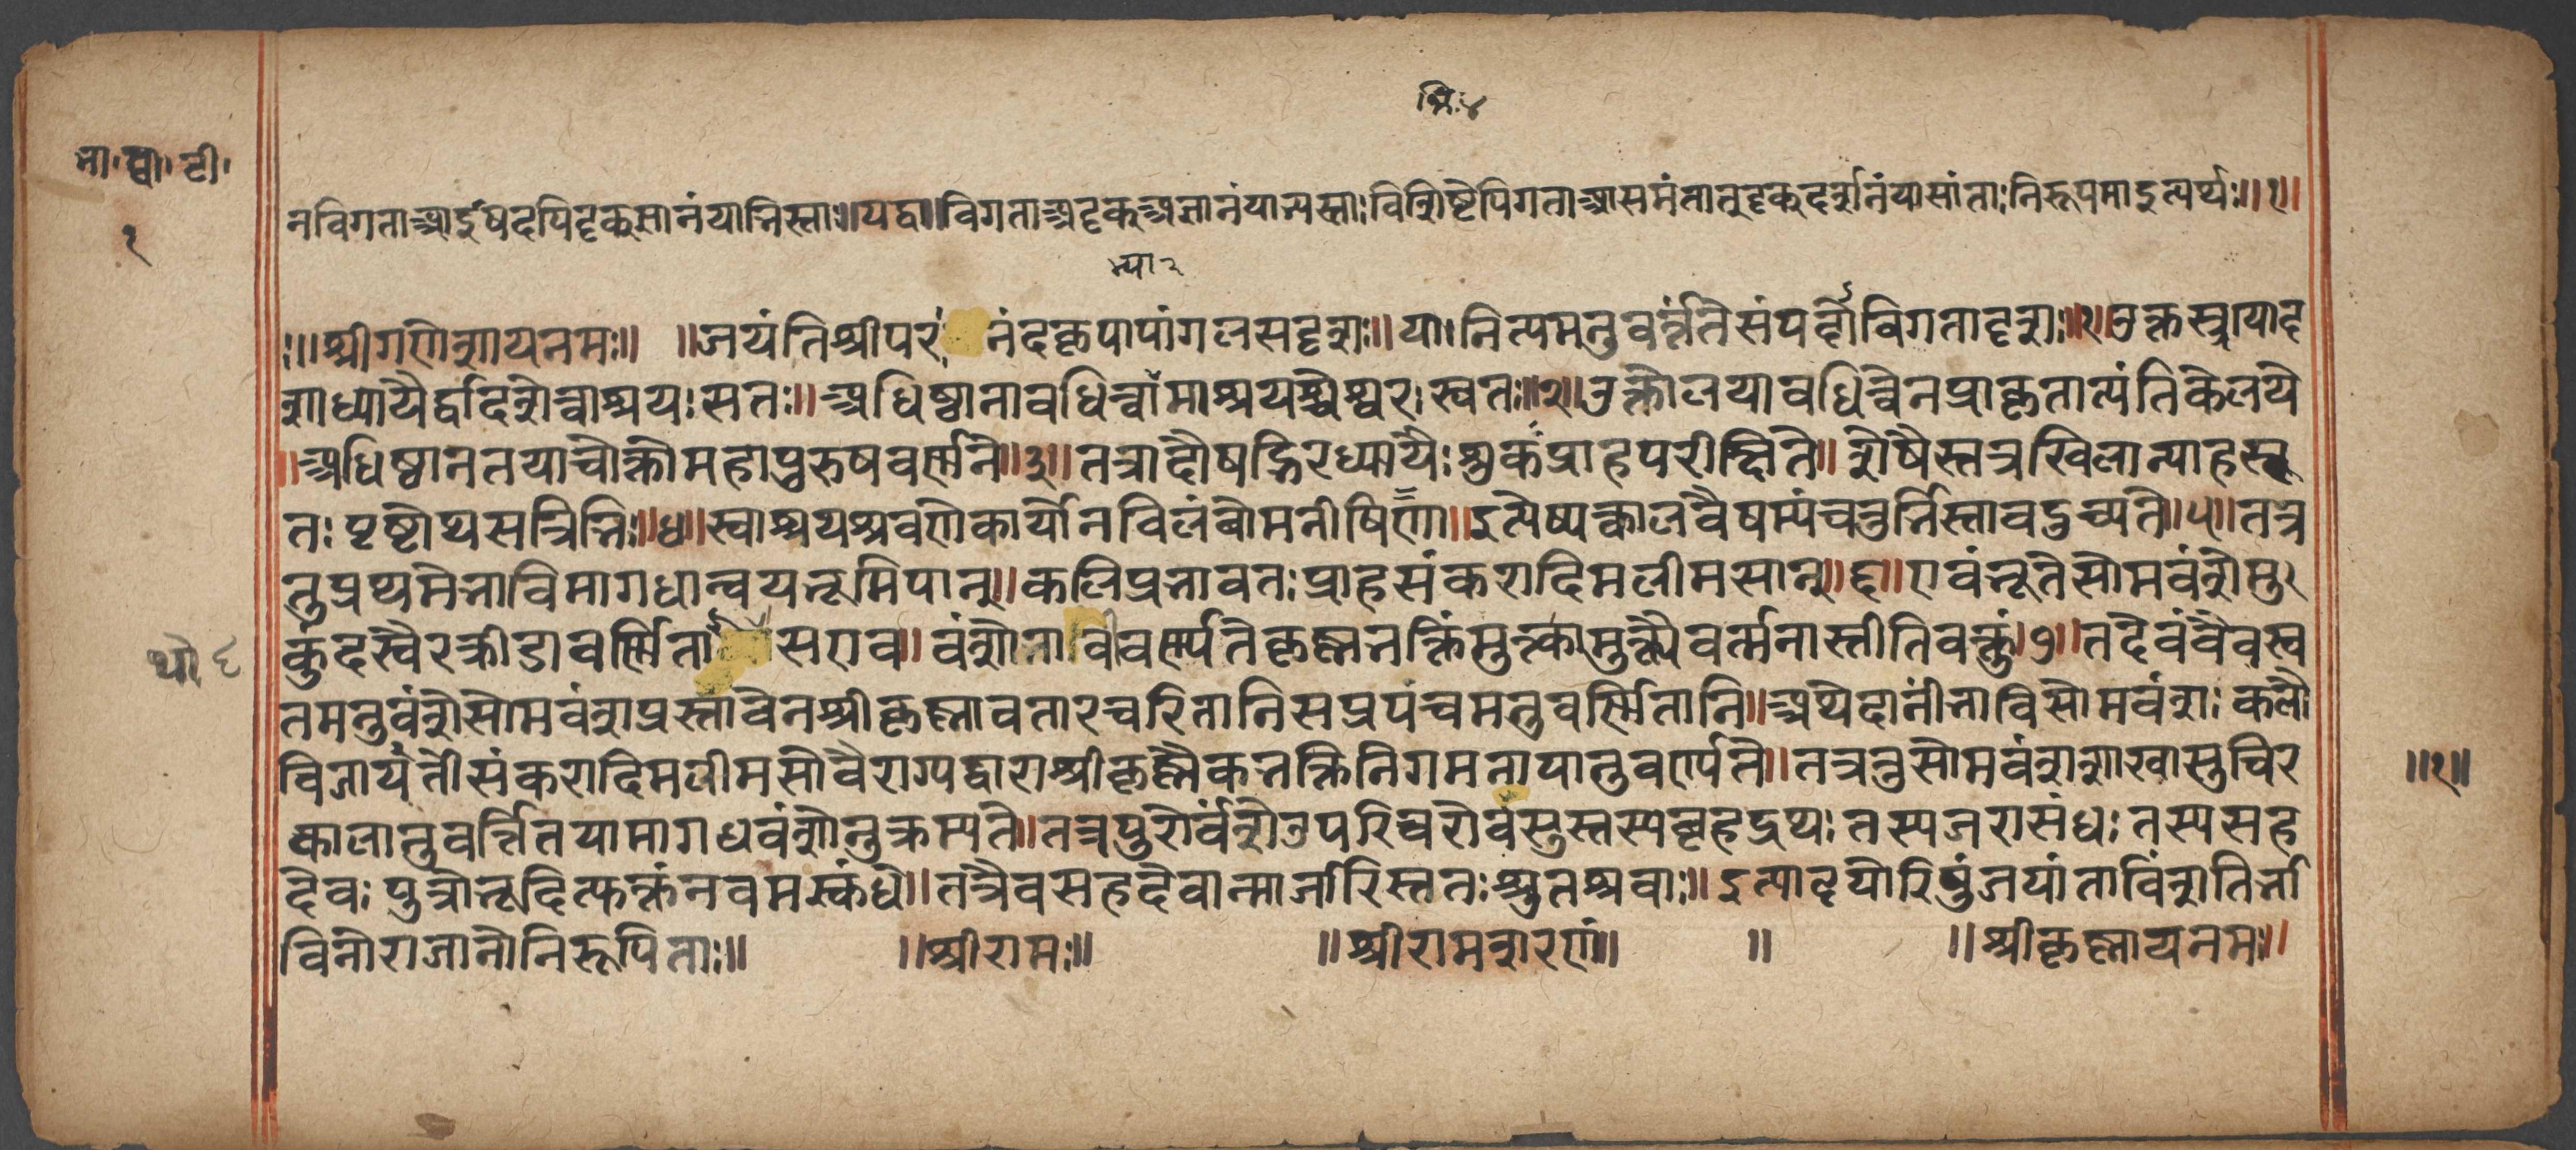 त्रि॰४
भा॰ द्वा॰ टी॰
१
नविगताआईषदपिदृक्ज्ञानंयाभिस्ताः॥यद्वा॥विगताअदृक्अज्ञानंयाभ्यस्ताः विशिष्टेपिगताआसमंतात्तुदृक्दर्शनंयासांताः निरूपमाइत्यर्थः॥१॥
भ्या२
॥श्रीगणेशायनमः॥ ॥जयंतिश्रीपरानंदकृपापांगलसदृशः॥ या नित्यमनुवर्त्तंतेसंपदोविगतादृशः॥१॥उक्तस्त्रयोद
शाध्यायैर्द्वादशेत्वाश्रयः सतः॥अधिष्ठानावधित्वाभ्यामाश्रयश्चेश्वरः स्वतः॥२॥उक्तोलयावधित्वेनप्राकृतात्यंतिकेलये
॥अधिष्ठानतयाचोक्तोमहापुरुषवर्णने॥३॥तत्रादौषड्भिरध्यायैः शुकः प्राहपरीक्षिते॥शेषैस्तत्रखिलान्याहसू
तः पृष्टोथसत्रिभिः॥४॥स्वाश्रयश्रवणेकार्योनविलंबोमनीषिणा॥इत्येष्यत्कालवैषम्यंचतुर्भिस्तावदुच्यते॥५॥तत्र
तुप्रथमेभाविमागधान्वयभूमिपान्॥कलिप्रभावतः प्राहसंकरादिमलीमसान्॥६॥एवंभूतेसोमवंशेमु
कुंदस्वैरक्रीडावर्णिता सएव॥वंशोभावीवर्ण्यतेकृष्णभक्तिंमुक्त्वामुक्त्यैवर्त्मनास्तीतिवक्तुं॥७॥तदेवंवैवस्व
थो ६
तमनुवंशेसोमवंशप्रस्तावेनश्रीकृष्णावतारचरितानिसप्रपंचमनुवर्णितानि॥अथेदानींभाविसोमवंशः कलौ
विजायंतोसंकरादिमलीमसोवैराग्यद्वाराश्रीकृष्णैकभक्तिनिगमनायानुवर्ण्यते॥तत्रतुसोमवंशशाखासुचिर
॥१॥
कालानुवर्त्तितयामागधवंशोनुक्रम्यते॥तत्रपुरोर्वंशेउपरिचरोवसुस्तस्यबृहद्रथः तस्यजरासंधः तस्यसह
देवः पुत्रोभूदित्युक्तंनवमस्कंधे॥तत्रैवसहदेवान्मार्जारिस्ततः श्रुतश्रवाः॥इत्याद्यारिपुंजयांताविंशतिर्भा
विनोराजानोनिरूपिताः॥ ॥श्रीरामः॥ ॥श्रीरामशरणं॥ ॥ ॥श्रीकृष्णायनमः॥